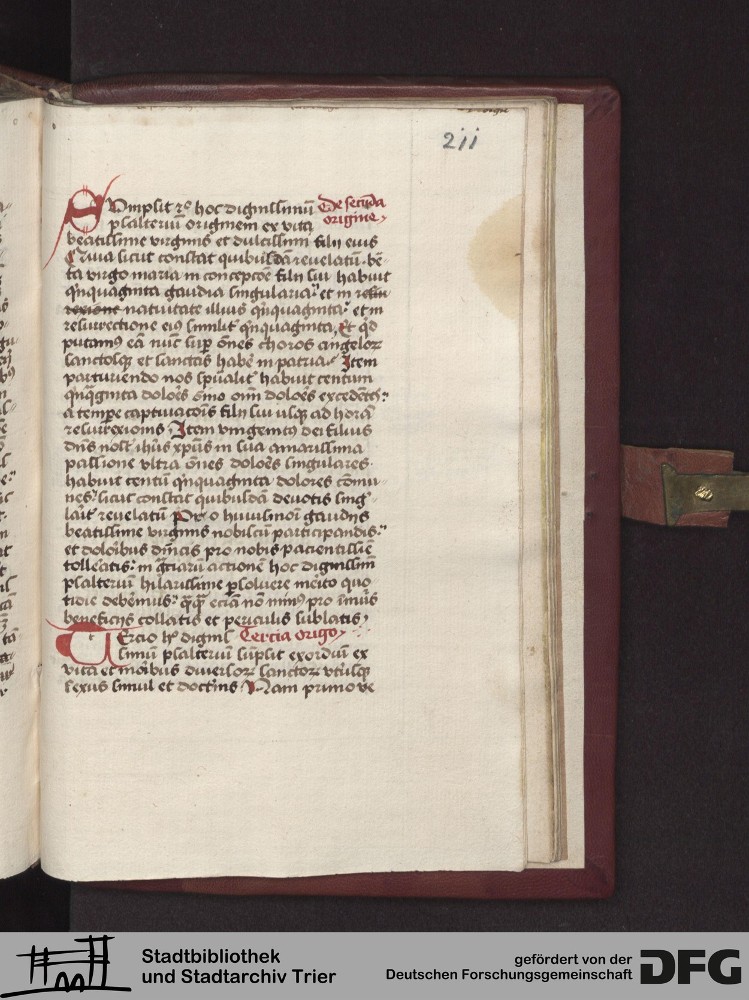 2ii
SVmpsit 2º hoc dignissimū De secūda
psalteriū originem ex vita origine
beatissime virginis et dulcissimi filij eius
Quia sicut constat quibusdā reuelatū. be-
ta virgo maria in concepcōe filij sui habuit
qinquaginta gaudia singularia et in resur
rexione natiuitate illius qinquaginta et in
resurrectione eius similit qinquaginta, Et qd
putamus eā nūc sup ōnes choros angelorꝫ
sanctosqꝫ et sanctas habē in patria. Item
parturiendo nos spūalit habuit centum
qinqaginta dolores omō oīm dolores excedētes
a tempe captiuacōis filij sui usqꝫ ad horā
resurrexionis Item vnigenitus dei filius
dn̄s nost ihūs xpūs in sua amarissima
passione vltra ōnes dolores singulares
habuit centū qinquaginta dolores cōmu
nes sicut constat quibusdā deuotis sing
larit reuelatū Pro huiusmōi gaudijs
beatissime virginis nobiscū participandis
et doloribus dn̄icis pro nobis pacientissie
tolleatis in gr̄arū actionē hoc dignissim
psalteriū hilarissime psoluere merito quo
tidie debemus qꝫqꝫ eciā nō minus pro īmēis
beneficijs collatis et periculis sublatis
TErcio hº digniss Tercia origo
simum psalteriū sūpsit exordiū ex
vita et moribus diuersorꝫ sanctorꝫ vtriusqꝫ
sexus simul et doctris Nam primo ve
Stadtbibliothek
und Stadtarchiv Trier
gefördert von der
Deutschen Forschungsgemeinschaft
DFG